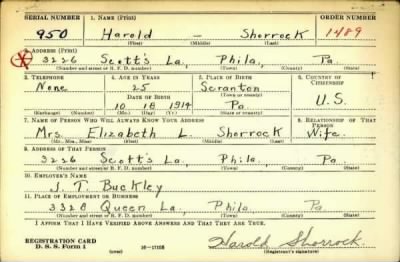 SERIAL NUMBER 1. NAME (Print) ORDER NUMBER
950 Harold - Shorrock 1489
(First) (Middle) (Last)
2. ADDRESS (Print)
3226 Scott's La, Phila, Pa.
(Number and street or R. F. D. number) (Town) (County) (State)
3. TELEPHONE 4. AGE IN YEARS 5. PLACE OF BIRTH 6. COUNTRY OF CITIZENSHIP
None 25 Scranton
DATE OF BIRTH (Town or county)
10 18 1914 Pa. U.S.
(Exchange) (Number) (Mo.) (Day) (Yr.) (State or country)
7. NAME OF PERSON WHO WILL ALWAYS KNOW YOUR ADDRESS 8. RELATIONSHIP OF THAT PERSON
Mrs. Elizabeth L. Shorrock Wife.
(Mr., Mrs., Miss) (First) (Middle) (Last)
9. ADDRESS OF THAT PERSON
3226 Scott's La, Phila. Pa
(Number and street or R. F. D. number) (Town) (County) (State)
10. EMPLOYER'S NAME
J. T. Buckley
11. PLACE OF EMPLOYMENT OR BUSINESS
3328 Queen La, Phila Pa
(Number and street or R. F. D. number) (Town) (County) (State)
I AFFIRM THAT I HAVE VERIFIED ABOVE ANSWERS AND THAT THEY ARE TRUE.
REGISTRATION CARD
D. S. S. Form 1 (over) 16-17105 Harold Shorrock
(Registrant's signature)